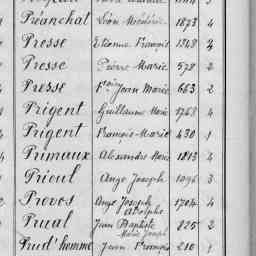 Préanchat Léon Modéric 1873 4
Presse Etienne François 1348 3
Presse Pierre Marie 578 2
Presse Fçois Jean Marie 663 2
Prigent Guillaume Marie 1768 4
Prigent François-Marie 430 1
Primaux Alexandre Marie 1813 4
Prieul Ange Joseph 1096 3
Provos Ange Joseph Adolphe 1704 4
Prual Jean Baptiste Marie Joseph 825 2
Prud'homme Jean François 210 1